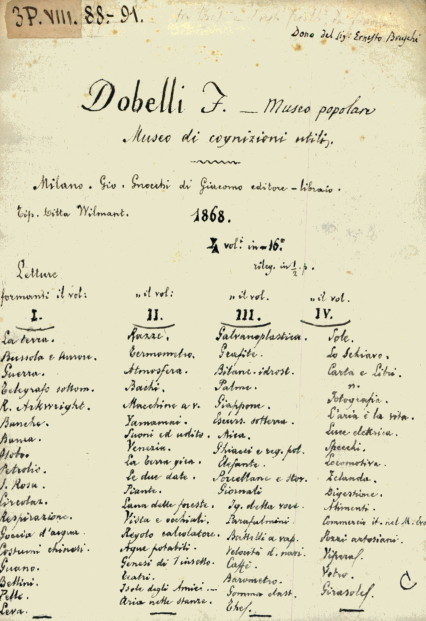 3P. VIII. 88-91.
Dono del Sig. Ernesto
Dobelli F. — Museo popolare
Museo di cognizioni utili,
Milano. Gio. Gnocchi di Giacomo editore-libraio.
Tip. Ditta Wilmant.
1868.
vol. in-16°
rileg. in 1/2 p.
Letture
formanti il vol:
I.
La terra.
Bussola e
Guerra.
Telegrafo sottom.
R. Arkwright.
Banche.
Petrolio.
S. Rosa.
Circolaz.
Respirazione.
Goccia d'acqua.
Costumi chinesi.
Guano.
Bettini.
Pelle.
Leva.
" il vol:
II.
Razzi.
Termometro.
Atmosfera.
Bachi.
Macchine a v.
Yamamai.
Suoni ed udito.
Venezia.
La terra gira.
Le due date.
Piante.
Lana delle foreste.
Vista e occhiali.
Regolo calcolatore.
Acque potabili.
Genesi di
Teatri.
Isole degli Amici
Aria nelle stanze.
" il vol.
III.
Galvanoplastica.
Grafite.
Bilanc. idrost.
Palme.
Giappone.
Escurs. sotterra.
Mica.
Ghiacci e reg. pol.
Elefante.
Porcellane e stov.
Giornali
Ig. della voce
Parafulmini
Battelli a vap.
Velocità d. navi.
Caffè.
Barometro.
Gomma elast.
Thè.
" il vol.
IV.
Sole.
Lo Schiavo.
Carta e Libri.
Fotografia.
L'aria è la vita.
Luce elettrica.
Specchi.
Locomotiva.
Zelanda.
Digestione.
Alimenti.
Commercio it. nel M.
Pozzi artesiani.
Vipera.
Vetro.
Girasole.
C